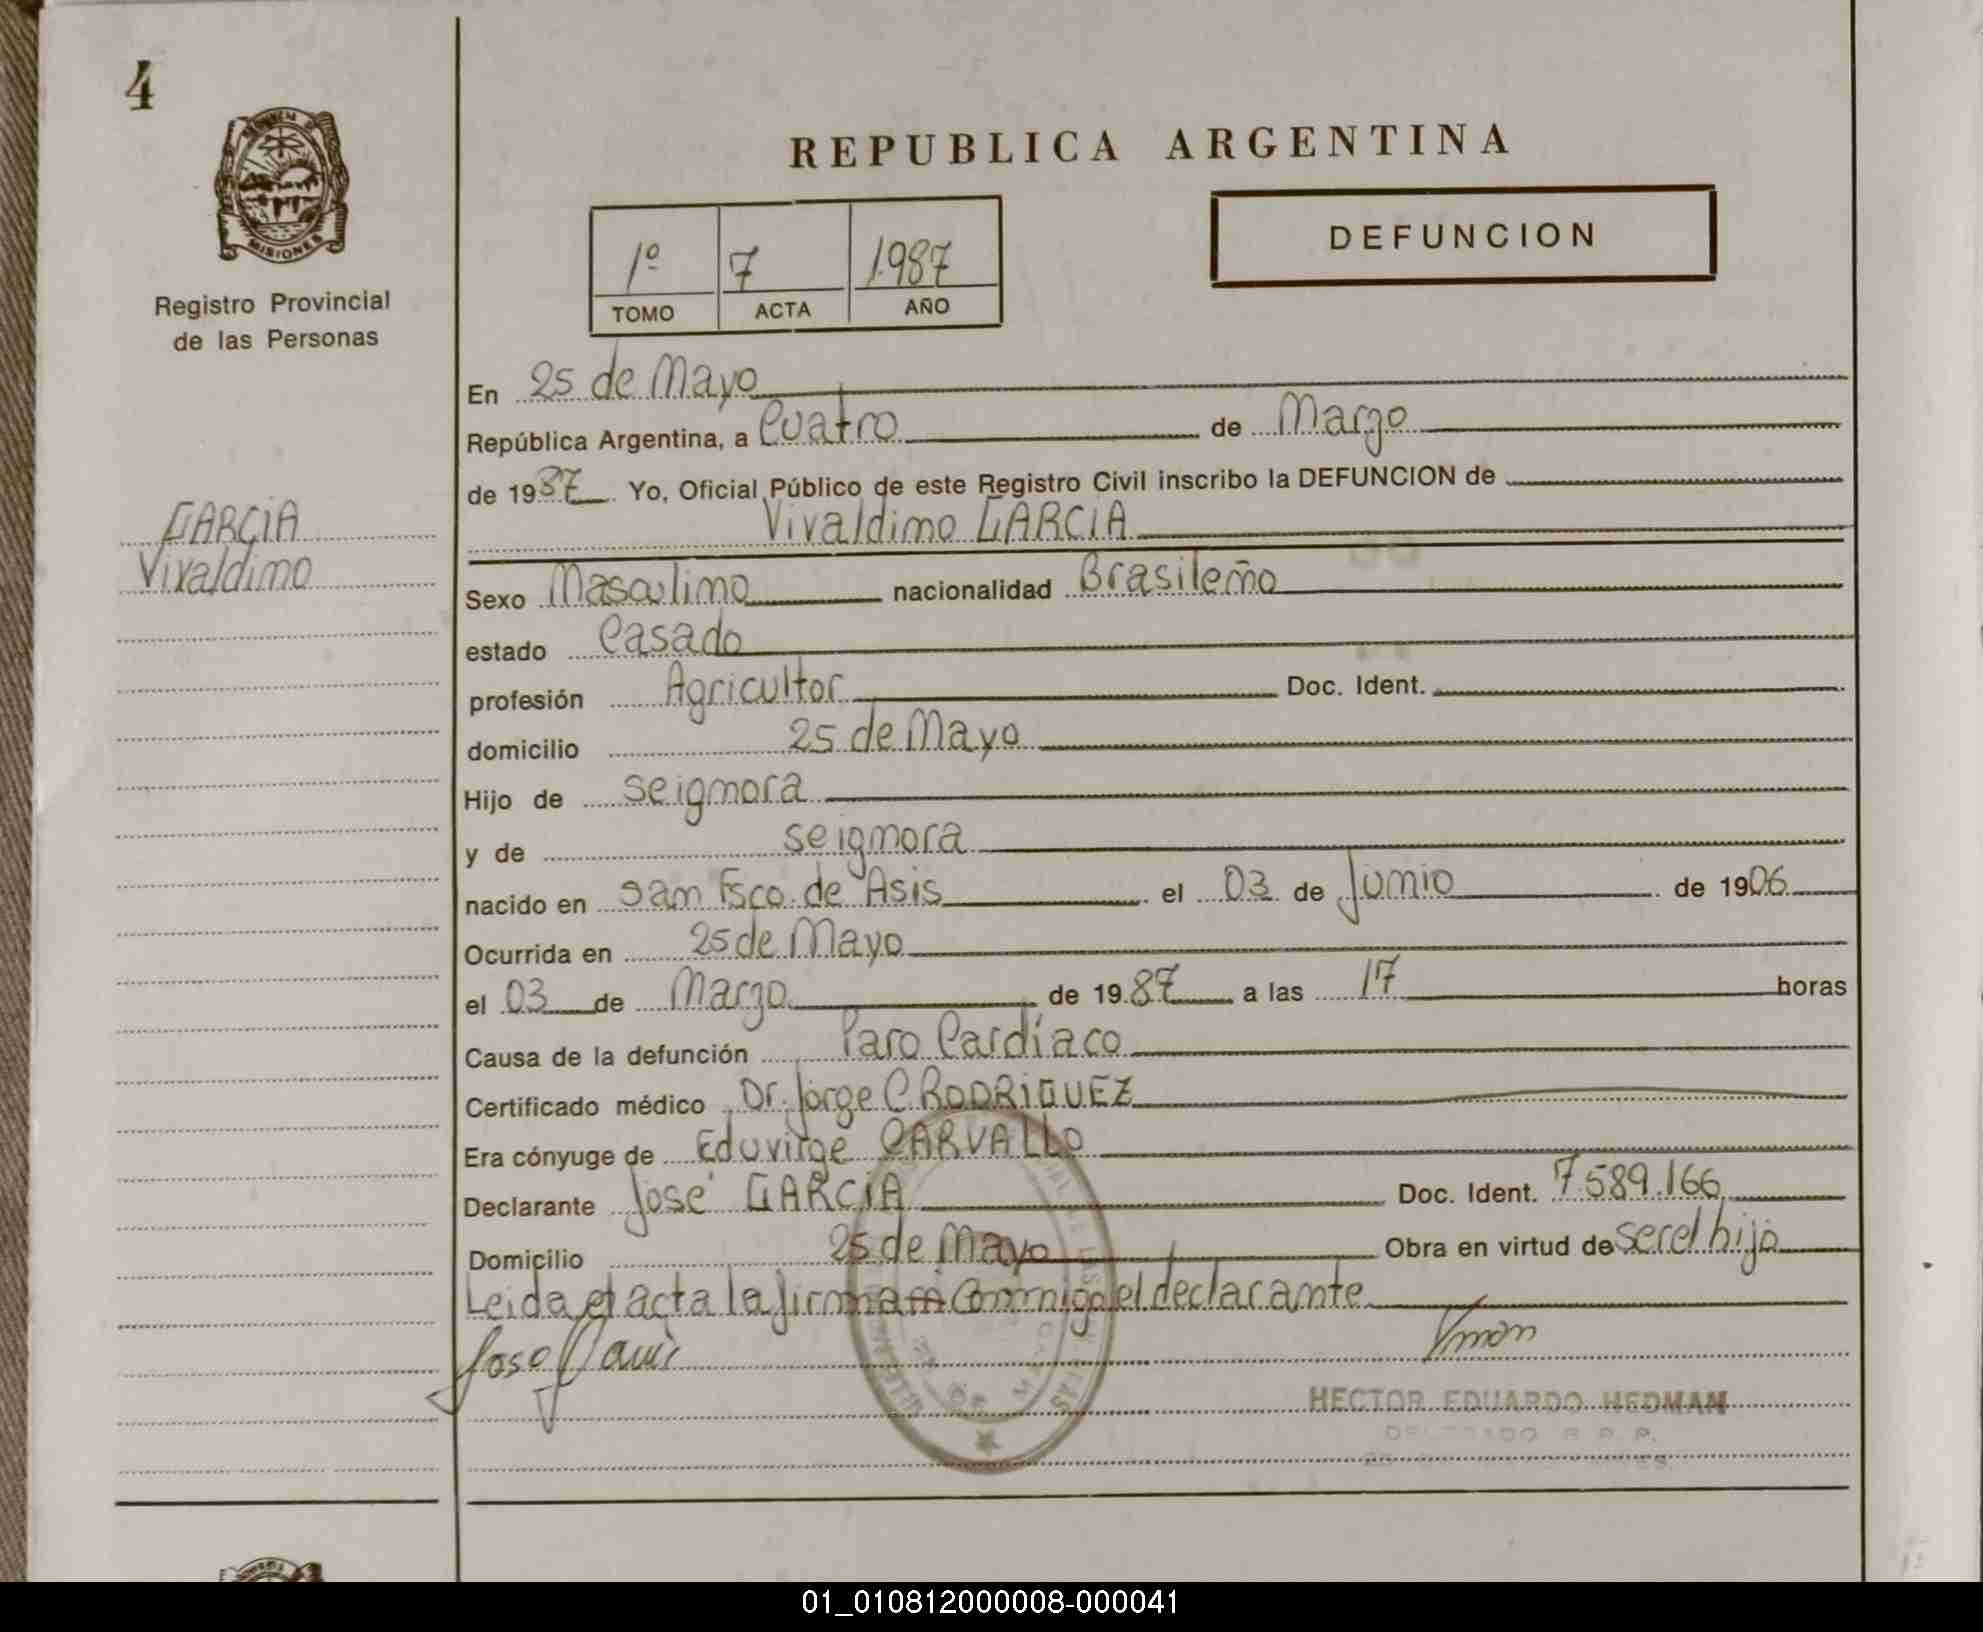 4
MISIONES
Registro Provincial
de las Personas
REPUBLICA ARGENTINA
DEFUNCION
1º 7 1987
TOMO ACTA AÑO
GARCIA
Vivaldimo
En 25 de Mayo
República Argentina, a Cuatro de Marzo
de 1987 Yo, Oficial Público de este Registro Civil inscribo la DEFUNCION de
Vivaldimo GARCIA
Sexo Masculino nacionalidad Brasileño
estado Casado
profesión Agricultor Doc. Ident.
domicilio 25 de Mayo
Hijo de seignora
y de seignora
nacido en San Fsco. de Asis el 03 de Junio de 1906
Ocurrida en 25 de Mayo
el 03 de Marzo de 1987 a las 17 horas
Causa de la defunción Paro Cardíaco
Certificado médico Dr. Jorge C RODRIGUEZ
Era cónyuge de Eduvirge CARVALLO
Declarante José GARCIA Doc. Ident. 7589.166
Domicilio 25 de Mayo Obra en virtud de ser el hijo
Leida el acta la firma Conmigo el declarante
HECTOR EDUARDO HEDMAN
01_010812000008-000041